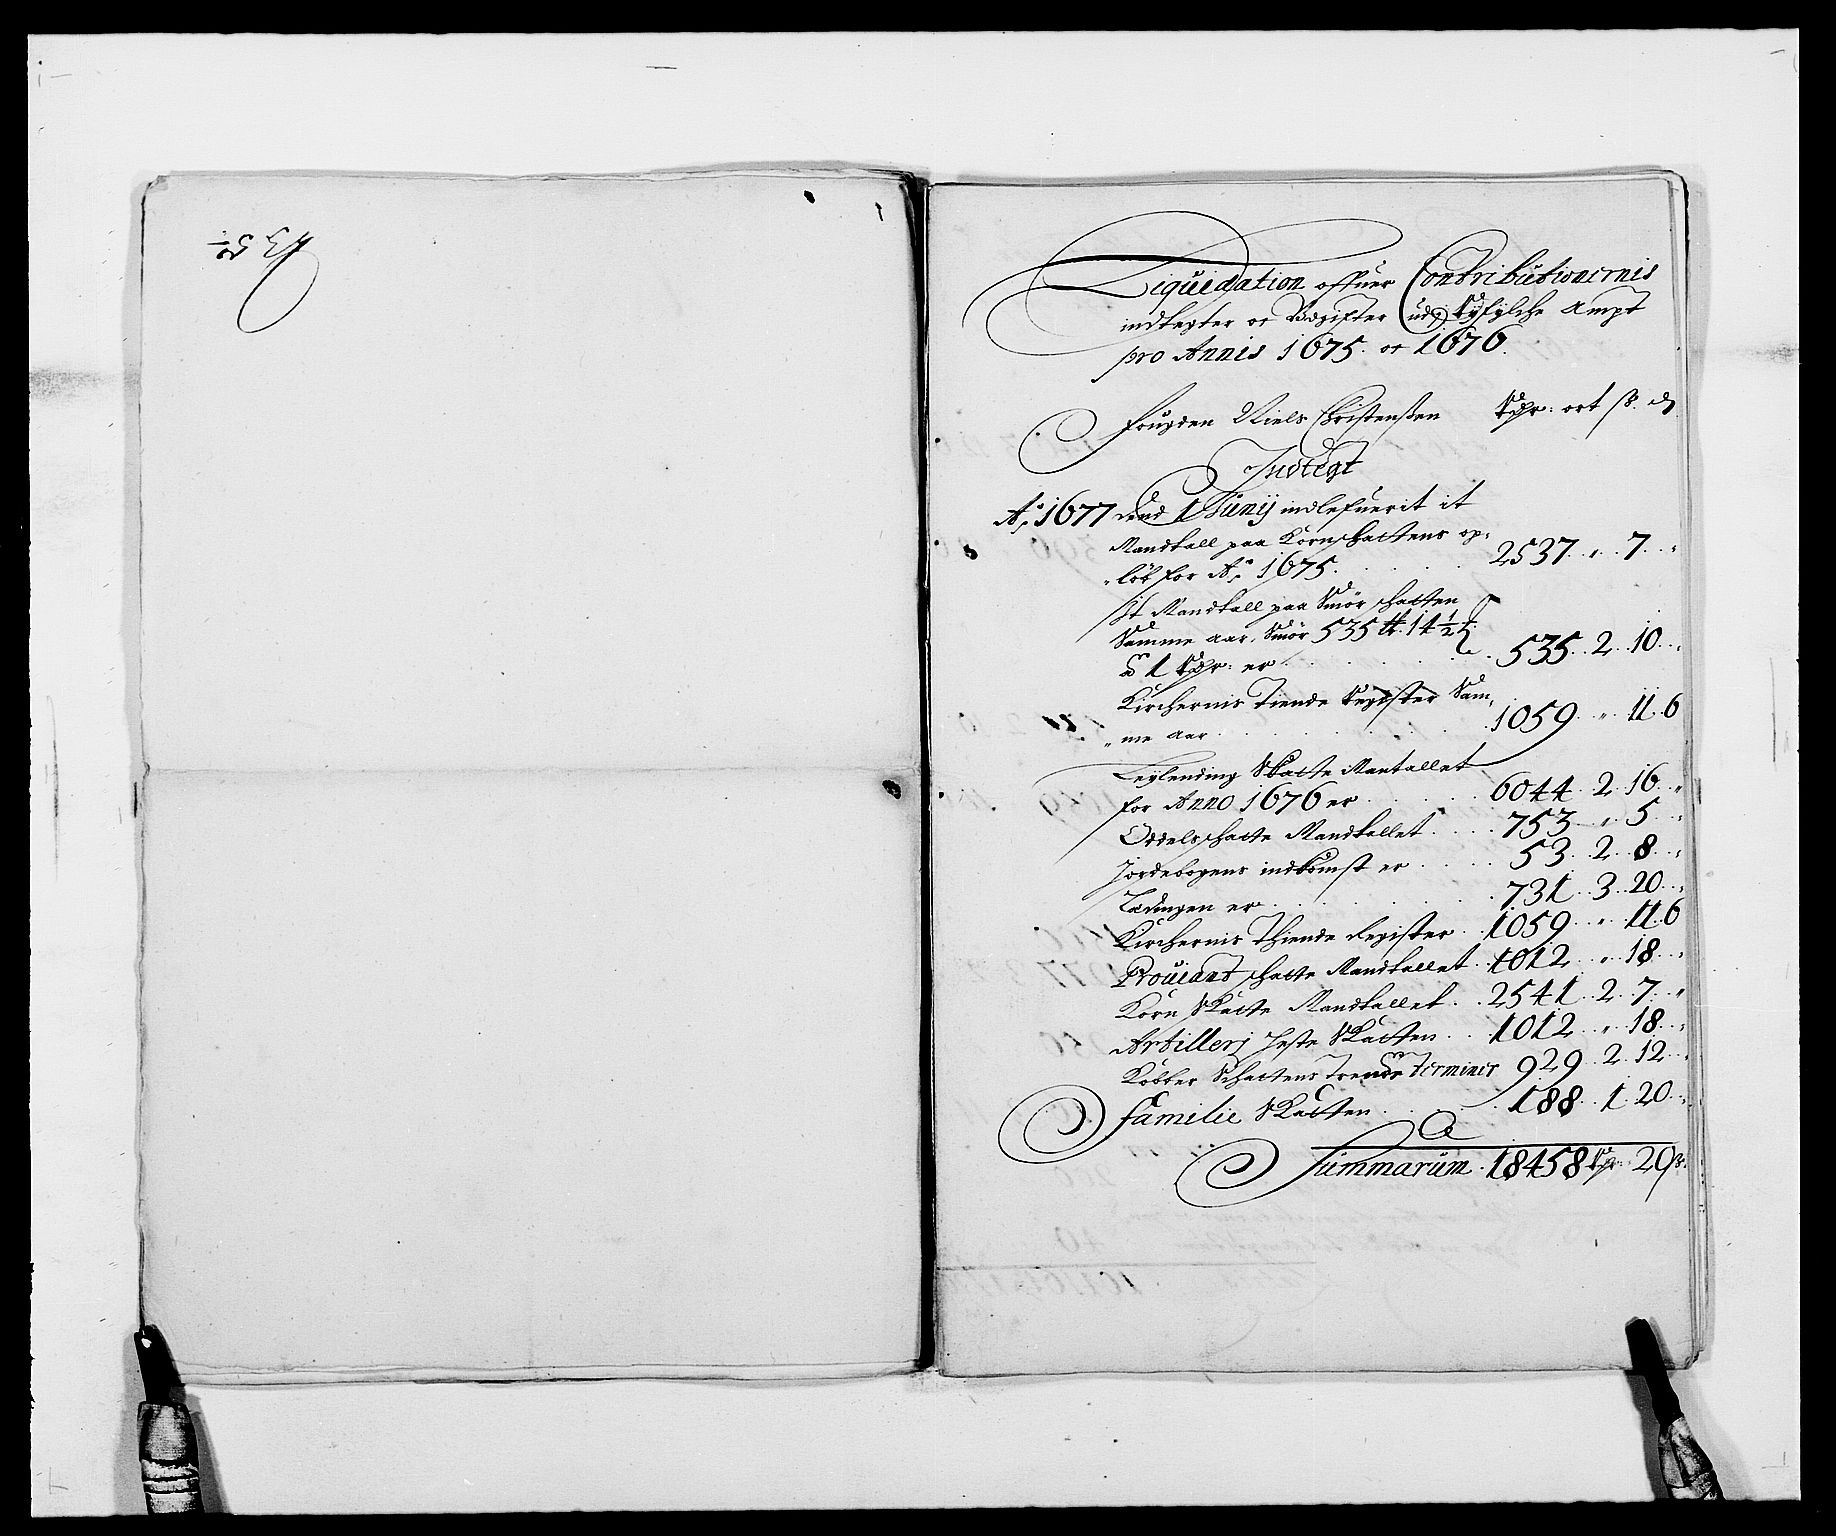 Liquidation offuer Contributionernis
indtegter oc Vdgifter udj Ryfylche Ampt
pro Annis 1675. oc 1676.
Fougden Niels Christensen Rdr: ort ß. d
Indtegt
Ao 1677 dend 1 Junij indlefuerit it
Mandtall paa Kornschattens op-
"løb for Ao 1675. 2537 " 7 "
It Mandtall paa Smør schatten
Samme aar, Smør 535 14½
à 1 Rdr: er 535 2 10 "
Kirchernis Tiende Register Sam-
"me aar 1059 " 11 6
Leylending Skatte Mantallet
for Anno 1676 er 6044 2 16 "
Oddelschatte Mandtallet 753 " 5 "
Jordebogens indkomst er 53 2 8 "
Leedingen er 731 3 20 "
Kirchernis Thiende Register 1059 " 11 6
Prouiant schatte Mandtallet 1012 " 18 "
Korn Skatte Mandtallet 2541 2 7 "
Artillerj Heste Skatten 1012 " 18 "
Kobber Schattens trende Terminer 929 2 12 "
Familie Skatten 188 1 20 "
Summarum 18458 Rdr 20 ß.